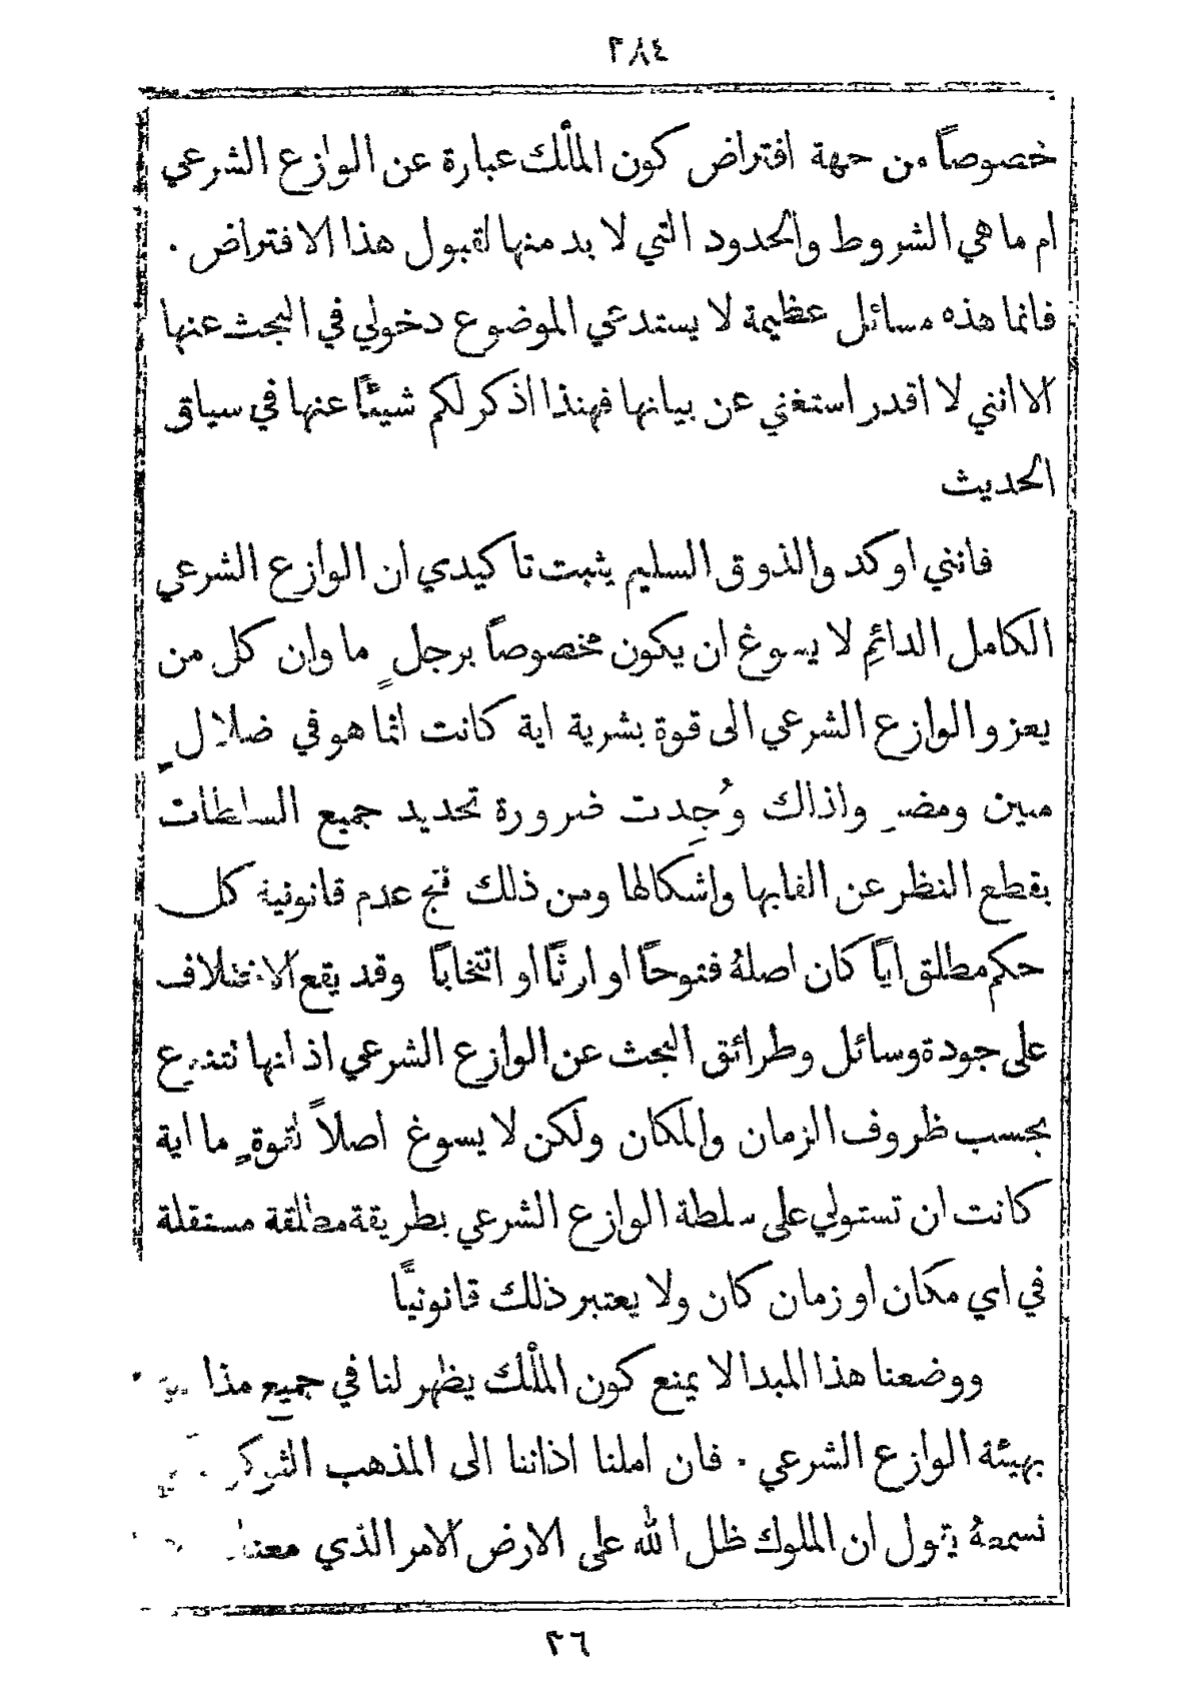 ٢٨٤
خصوصاً من جهة افتراض كون الملك عبارة عن الوازع الشرعي
ام ما هي الشروط والحدود التي لا بد منها لقبول هذا الافتراض .
فانما هذه مسائل عظيمة لا يستدعي الموضوع دخولي في البحث عنها
الا انني لا اقدر استغني عن بيانها فهنذا اذكر لكم شيئاً عنها في سياق
الحديث
فانني اوكد والذوق السليم يثبت تاكيدي ان الوازع الشرعي
الكامل الدائمِ لا يسوغ ان يكون مخصوصاً برجلٍ ما وان كل من
يعزو الوازع الشرعي الى قوة بشرية اية كانت انما هو في ضلالٍ
مبين ومضر ولذلك وُجِدت ضرورة تحديد جميع السلطات
بقطع النظر عن القابها واشكالها ومن ذلك نتج عدم قانونية كل
حكم مطلق اياً كان اصلهُ فتوحاً او ارثاً او انتخاباً وقد يقع الاختلاف
على جودة وسائل وطرائق البحث عن الوازع الشرعي اذ انها تتنوع
بحسب ظروف الزمان والمكان ولكن لا يسوغ اصلاً لقوةٍ ما اية
كانت ان تستولي على سلطة الوازع الشرعي بطريقة مطلقة مستقلة
في اي مكان او زمان كان ولا يعتبر ذلك قانونيًّا
ووضعنا هذا المبدا لا يمنع كون الملك يظهر لنا في جميع
بهيئة الوازع الشرعي . فان املنا اذاننا الى المذهب
نسمعهُ يقول ان الملوك ظل الله على الارض الامر الذي
٢٦